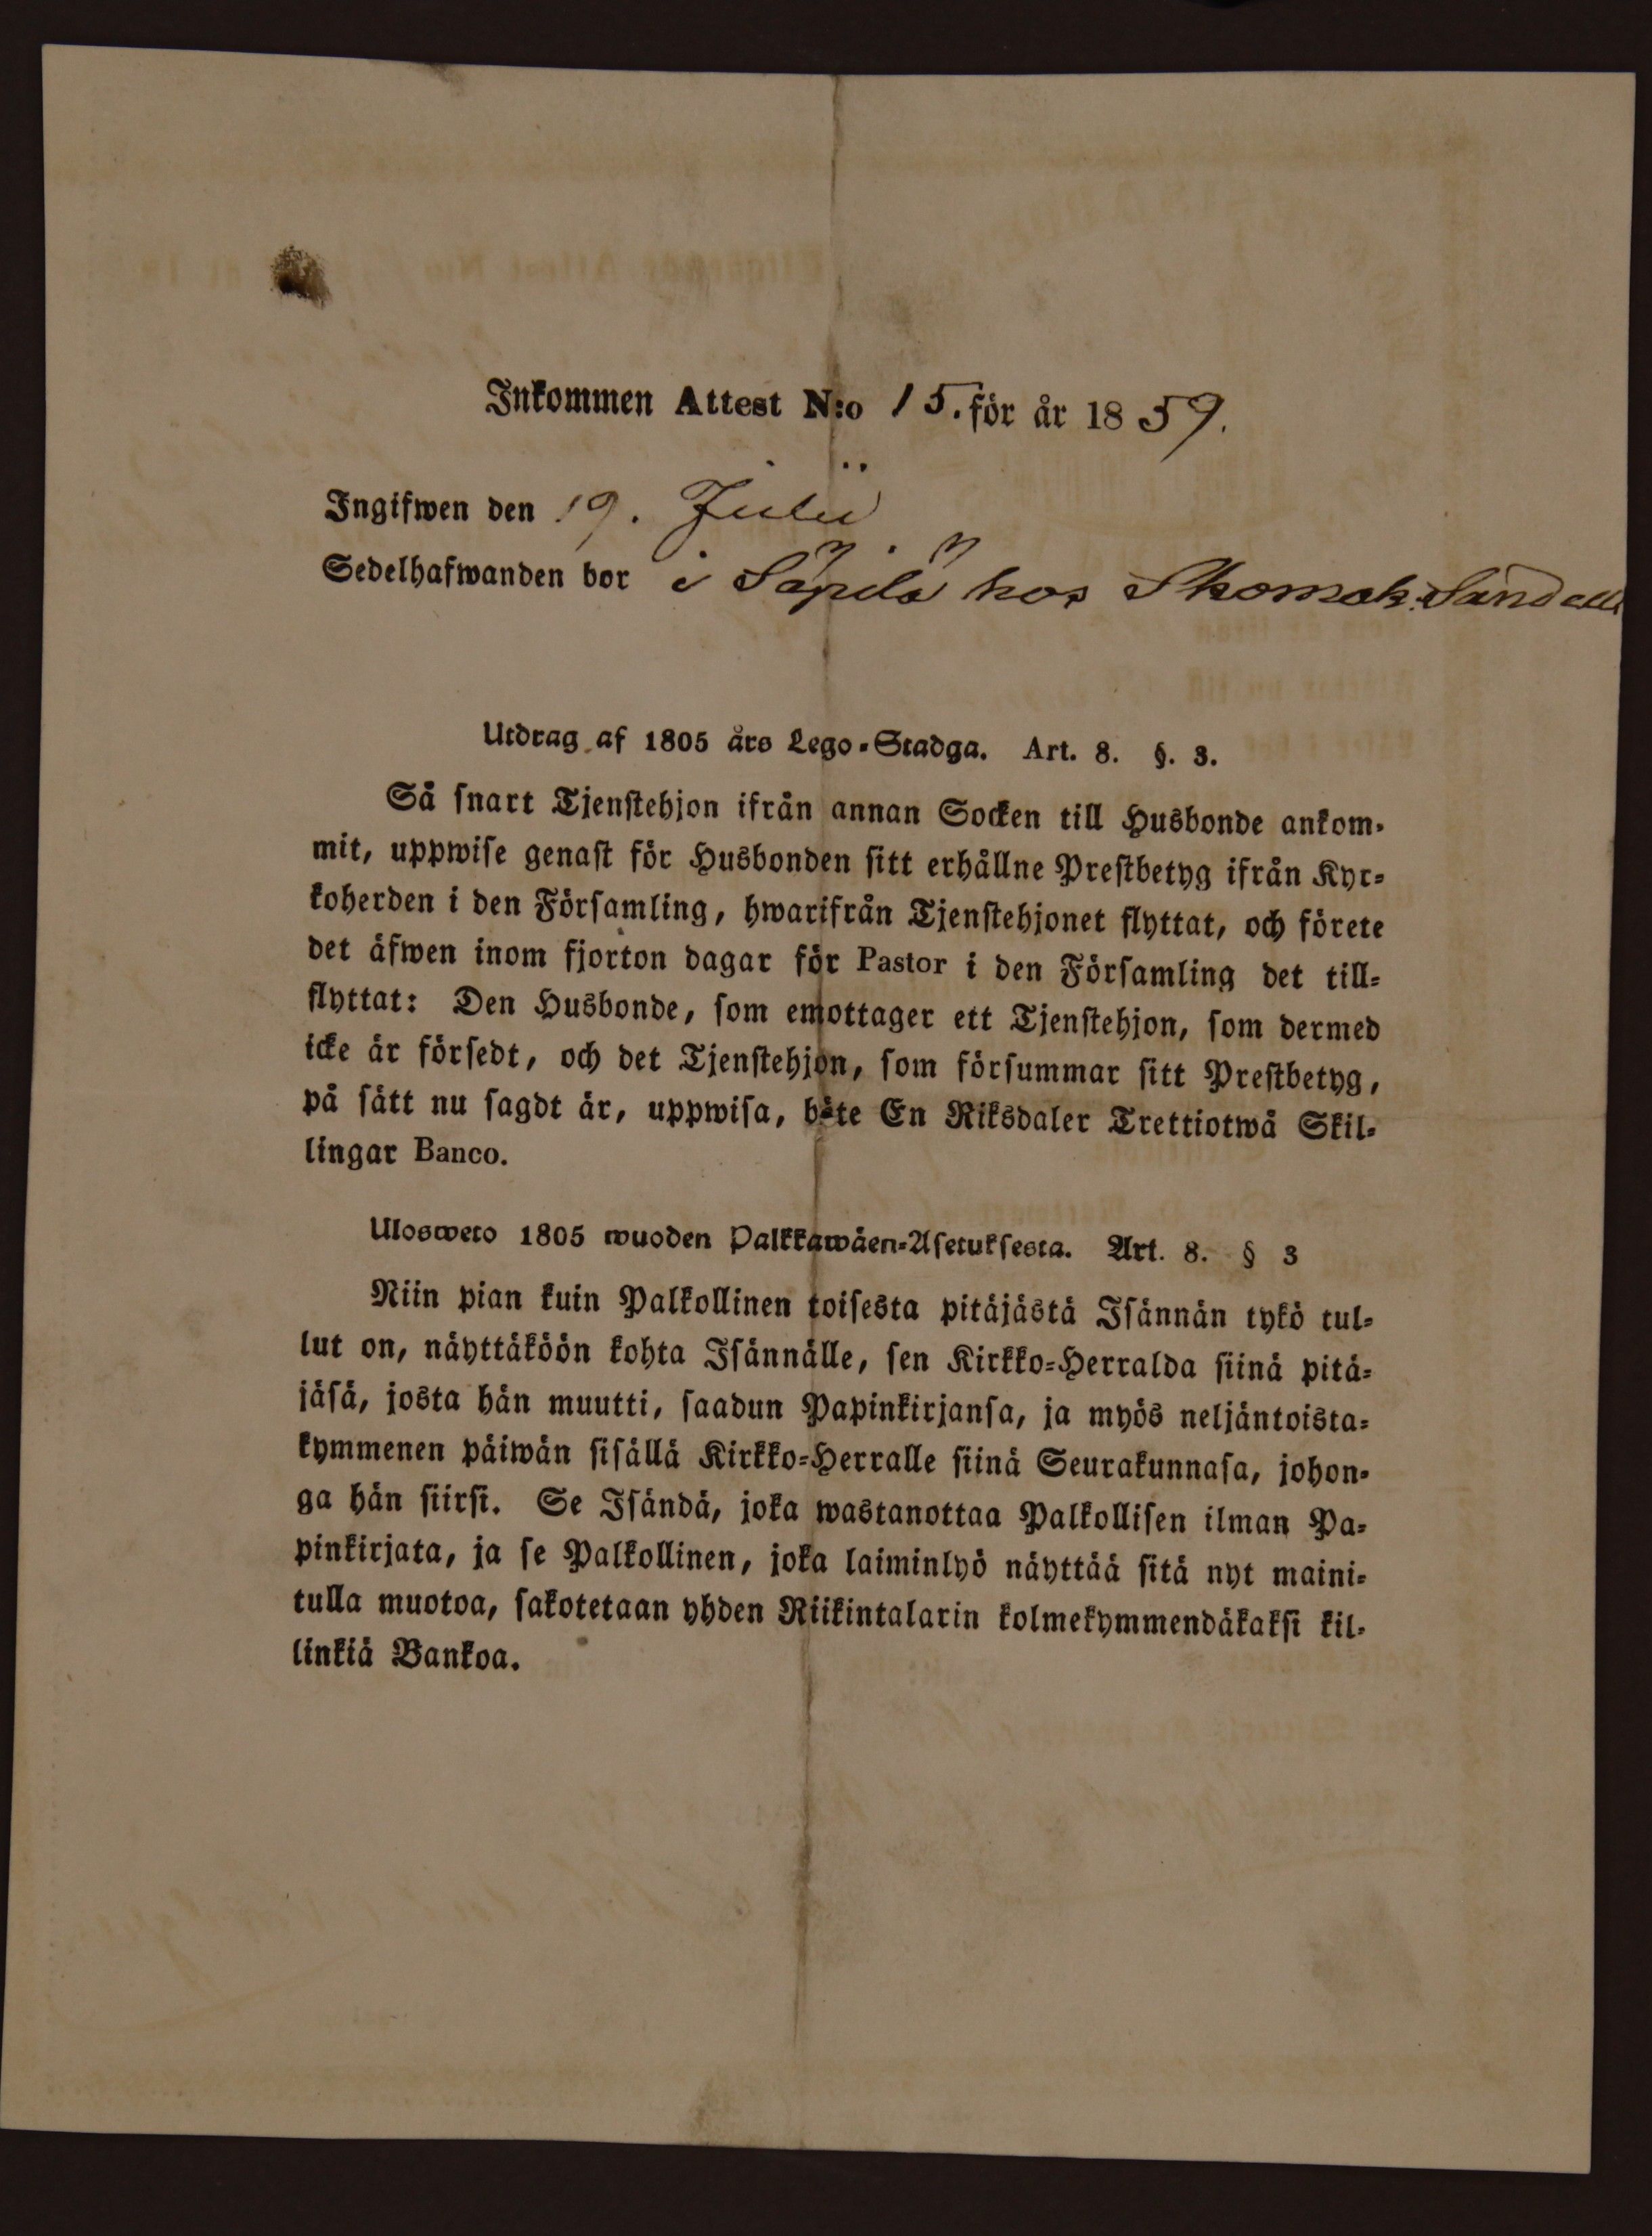 Inkommen Attest N:o 15. för år 1859.
Ingifwen den 19. Julii
Sedelhafwanden bor i Säpilä hos Skomak. Sandell
Utdrag af 1805 års Lego-Stadga. Art. 8. §. 3.
Så snart Tjenstehjon ifrån annan Socken till Husbonde ankom-
mit, uppwise genast för Husbonden sitt erhållne Prestbetyg ifrån Kyr-
koherden i den Församling, hwarifrån Tjenstehjonet flyttat, och förete
det äfwen inom fjorton dagar för Pastor i den Församling det till-
flyttat: Den Husbonde, som emottager ett Tjenstehjon, som dermed
icke är försedt, och det Tjenstehjon, som försummar sitt Prestbetyg,
på sätt nu sagdt är, uppwisa, böte En Riksdaler Trettiotwå Skil-
lingar Banco.
Ulosweto 1805 wuoden Palkkawäen-Asetuksesta. Art. 8. § 3
Niin pian kuin Palkollinen toisesta pitäjästä Isännän tykö tul-
lut on, näyttäköön kohta Isännälle, sen Kirkko-Herralda siinä pitä-
jäsä, josta hän muutti, saadun Papinkirjansa, ja myös neljäntoista-
kymmenen päiwän sisällä Kirkko-Herralle siinä Seurakunnasa, johon-
ga hän siirsi. Se Isändä, joka wastanottaa Palkollisen ilman Pa-
pinkirjata, ja se Palkollinen, joka laiminlyö näyttää sitä nyt maini-
tulla muotoa, sakotetaan yhden Riikintalarin kolmekymmendäkaksi kil-
linkiä Bankoa.